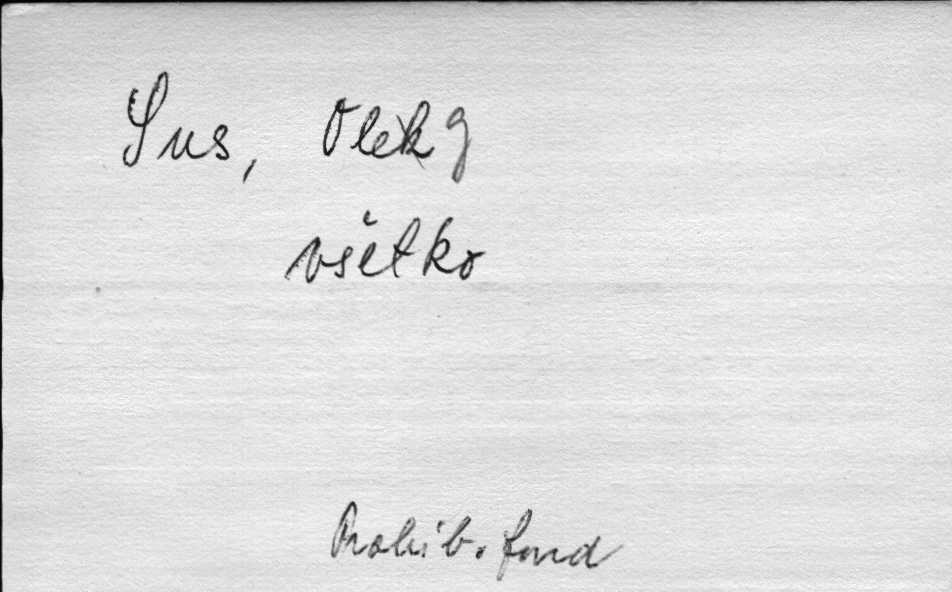 Sus, Oleg
všetko
Prohib. fond